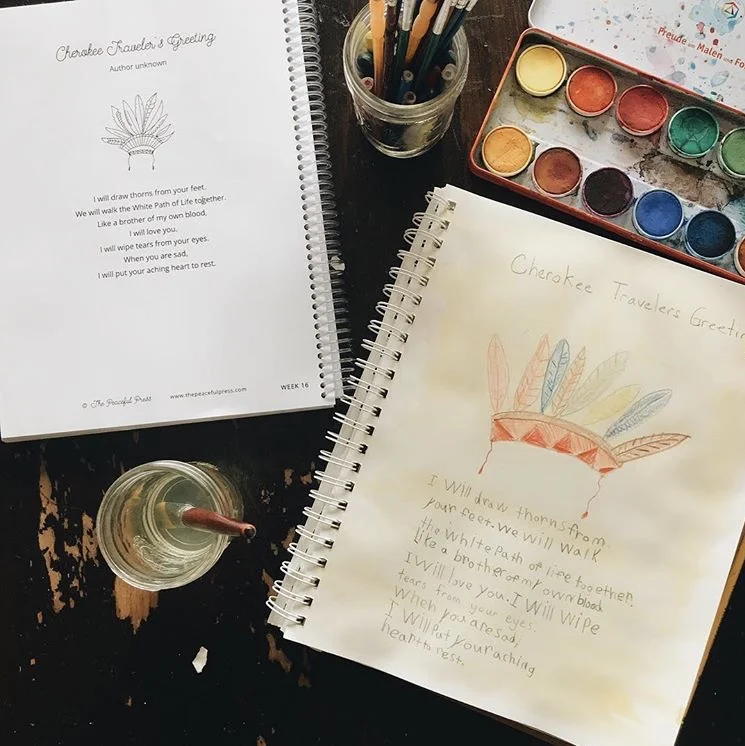 Cherokee Traveler's Greeting
Author unknown
I will draw thorns from your feet.
We will walk the White Path of Life together.
Like a brother of my own blood,
I will love you.
I will wipe tears from your eyes.
When you are sad,
I will put your aching heart to rest.
© The Peaceful Press www.thepeacefulpress.com WEEK 16
Freude Malen und Fo
Cherokee Travelers Greetin
I will draw thorns from
your feet. We will walk
the White Path of life together.
Like a brother of my own blood
I will love you. I will wipe
tears from your eyes.
When you are sad,
I will put your aching
heart to rest.